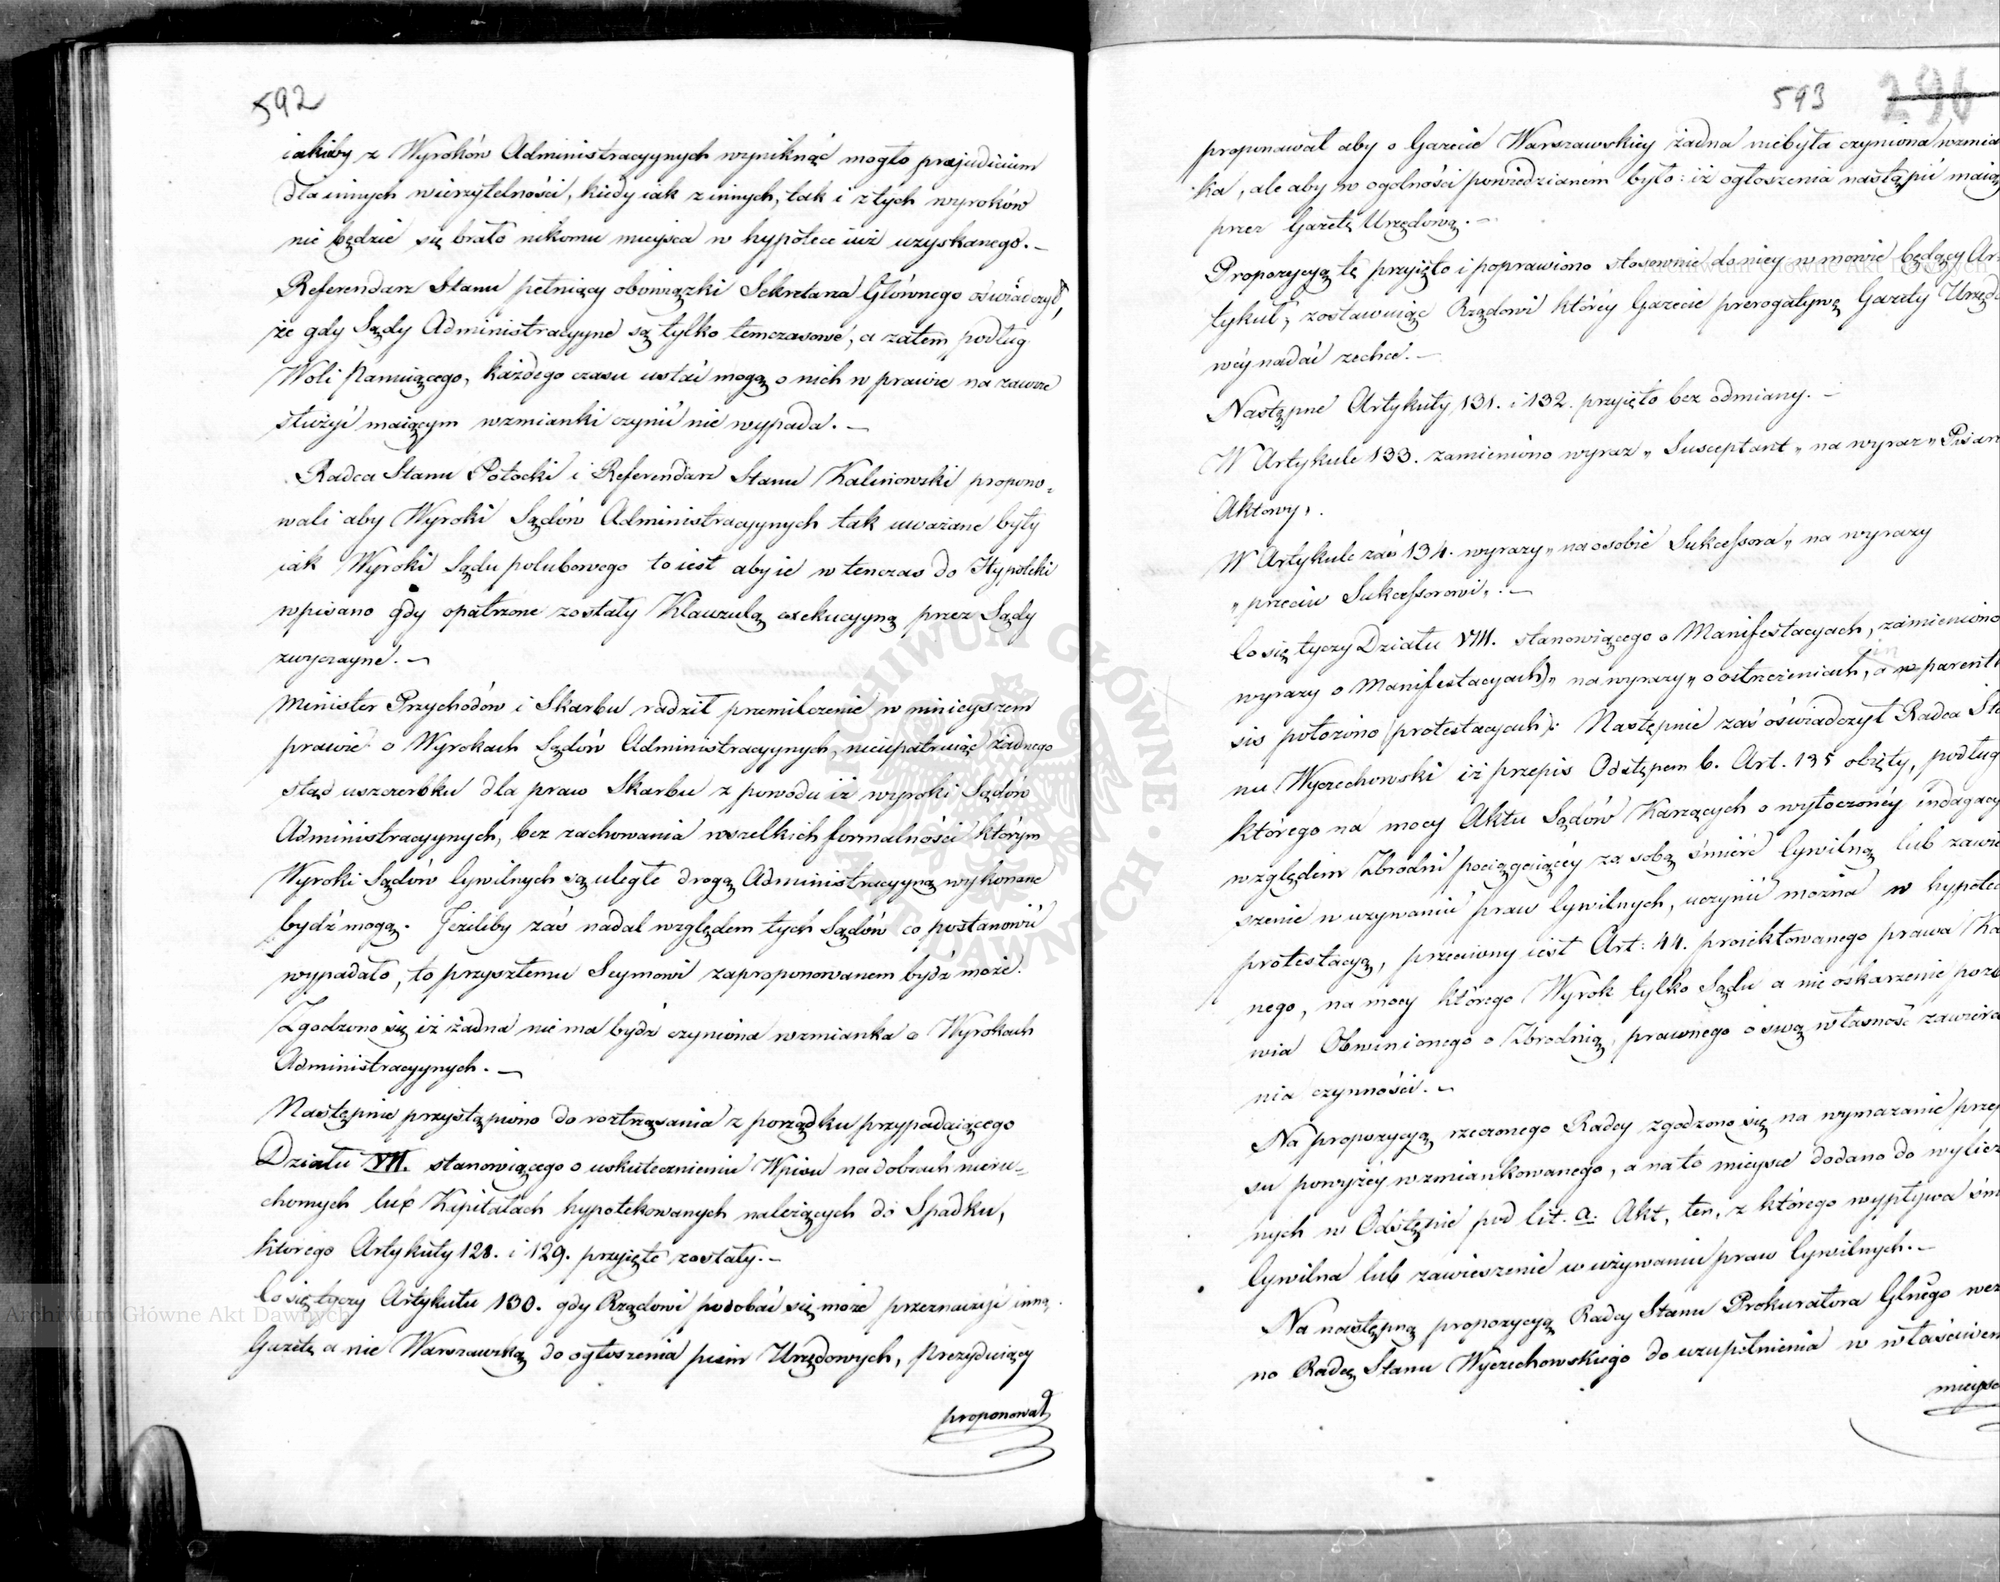 592
iakiby z Wyroków Administracyynych wyniknąć mogło prejudicium
dla innych wierzytelności, kiedy iak z innych, tak i z tych wyroków
nie będzie się brało nikomu mieysca w hypotece iuż uzyskanego. —
Referendarz Stanu pełniący obowiązki Sekretarza Głównego oświadczył,
że gdy Sądy Administracyyne są tylko temczasowe, a zatem podług
Woli Panuiącego, każdego czasu ustać mogą o nich w prawie na zawsze
służyć maiącym wzmianki czynić nie wypada. —
Radca Stanu Potocki i Referendarz Stanu Kalinowski propono-
wali aby Wyroki Sądów Administracyynych tak uważane były
iak Wyroki Sądu polubowego to iest aby ie w tenczas do Hypoteki
wpisano gdy opatrzone zostały Klauzulą exekucyyną przez Sądy
zwyczayne. —
Minister Przychodów i Skarbu radził przemilczenie w ninieyszem
prawie o Wyrokach Sądów Administracyynych, nieupatruiąc żadnego
stąd uszczerbku dla praw Skarbu z powodu iż wyroki Sądów
Administracyynych, bez zachowania wszelkich formalności którym
Wyroki Sądów Cywilnych są uległe drogą Administracyyną wykonane
bydź mogą. Jeżeliby zaś nadal względem tych Sądów co postanowić
wypadało, to przyszłemu Seymowi zaproponowanem bydź może.
Zgodzono się iż żadna nie ma bydź czyniona wzmianka o Wyrokach
Administracyynych. —
Następnie przystąpiono do roztrząsania z porządku przypadaiącego
Działu VII. stanowiącego o uskutecznieniu Wpisu na dobrach nieru-
chomych lub Kapitałach hypotekowanych należących do Spadku,
którego Artykuły 128. i 129. przyięte zostały. —
Co się tyczy Artykułu 130. gdy Rządowi podobać się może przeznaczyć inną
Gazetę a nie Warszawską do ogłoszenia pism Urzędowych, Prezyduiący
proponował
593 296
proponował aby o Gazecie Warszawskiey żadna niebyła czyniona wzmian
ka, ale aby w ogólności powiedzianem było: iż ogłoszenia nastąpić maią
przez Gazetę Urzędową. —
Propozycyą tę przyięto i poprawiono stosownie do niey w mowie będący Ar-
tykuł, zostawuiąc Rządowi którey Gazecie prerogatywę Gazety Urzędo
wéy nadać zechce. —
Następne Artykuły 131. i 132. przyięto bez odmiany. —
W Artykule 133. zamieniono wyraz „Susceptant„ na wyraz „Pisarz
Aktowy„.
W Artykule zaś 134. wyrazy „na osobie Sukcessora„ na wyrazy
„przeciw Sukcessorowi„. —
Co się tyczy Działu VIII. stanowiącego o Manifestacyach, zamieniono
wyrazy o Manifestacyach„ na wyrazy „o ostrzeżeniach, a w parenthe
sis położono (protestacyach): Następnie zaś oświadczył Radca Sta
nu Wyczechowski iż przepis Odstępem b. Art. 135 obięty, podług
którego na mocy Aktu Sądów Karzących o wytoczonéy indagacyi
względem Zbrodni pociągaiącéy za sobą śmierć Cywilną lub zawie
szenie w używaniu praw Cywilnych, uczynić można w hypotece
protestacyą, przeciwny iest Art: 44. proiektowanego prawa Kar
nego, na mocy którego Wyrok tylko Sądu a nie oskarżenie pozba
wia Obwinionego o Zbrodnią, prawnego o swą własność zawiera
nia czynności. —
Na propozycyą rzeczonego Radcy zgodzono się na wymazanie przepi
su powyżéy wzmiankowanego, a na to mieysce dodano do wyliczo
nych w Odstępie pod lit. a. Akt, ten, z którego wypływa śmi
Cywilna lub zawieszenie w używaniu praw Cywilnych. —
Na następną propozycyą Radcy Stanu Prokuratora Głnego wezwa
no Radcę Stanu Wyczechowskiego do uzupełnienia w właściwem
mieysc